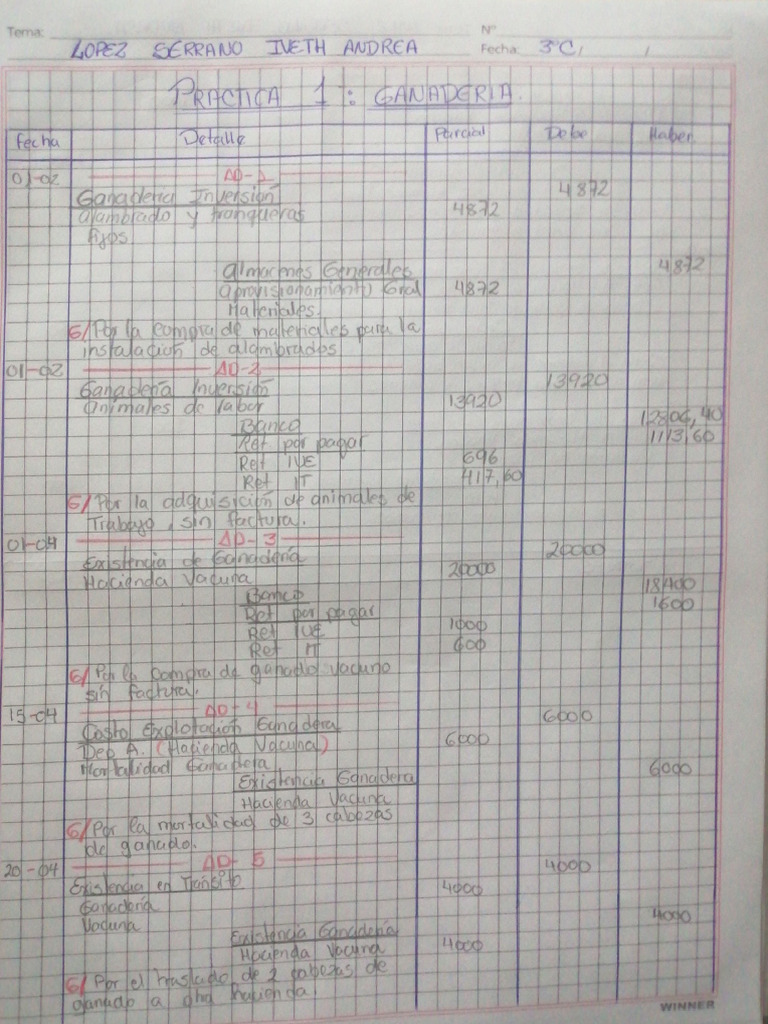 Tema: Nº
LOPEZ SERRANO IVETH ANDREA Fecha: 3ºC, /
PRACTICA 1: GANADERIA.
Fecha Detalle Parcial Debe Haber
01-02 AD-1
Ganaderia Inversión 4872
alambrado y tranqueras 4872
fijos.
Almacenes Generales 4872
aprovisionamiento Gral 4872
Materiales.
G/ Por la compra de materiales para la
instalación de alambrados
01-02 AD-2
Ganadería Inversión 13920
Animales de labor 13920
Banco 12806,40
Ret por pagar 1113,60
Ret IUE 696
Ret IT 417,60
G/ Por la adquisición de animales de
Trabajo, sin factura.
01-04 AD-3
Existencia de Ganadería 20000
Hacienda Vacuna 20000
Banco 18400
Ret por pagar 1600
Ret IUE 1000
Ret IT 600
G/ Por la compra de ganado vacuno
sin factura.
15-04 AD-4
Costo Explotación Ganadera 6000
Dep A. (Hacienda Vacuna) 6000
Mortalidad Ganadera
Existencia Ganadera 6000
Hacienda Vacuna
G/ Por la mortalidad de 3 cabezas
de ganado.
20-04 AD-5
Existencia en Transito 4000
Ganadería 4000
Vacuna
Existencia Ganadería 4000
Hacienda Vacuna 4000
G/ Por el traslado de 2 cabezas de
ganado a otra hacienda.
WINNER